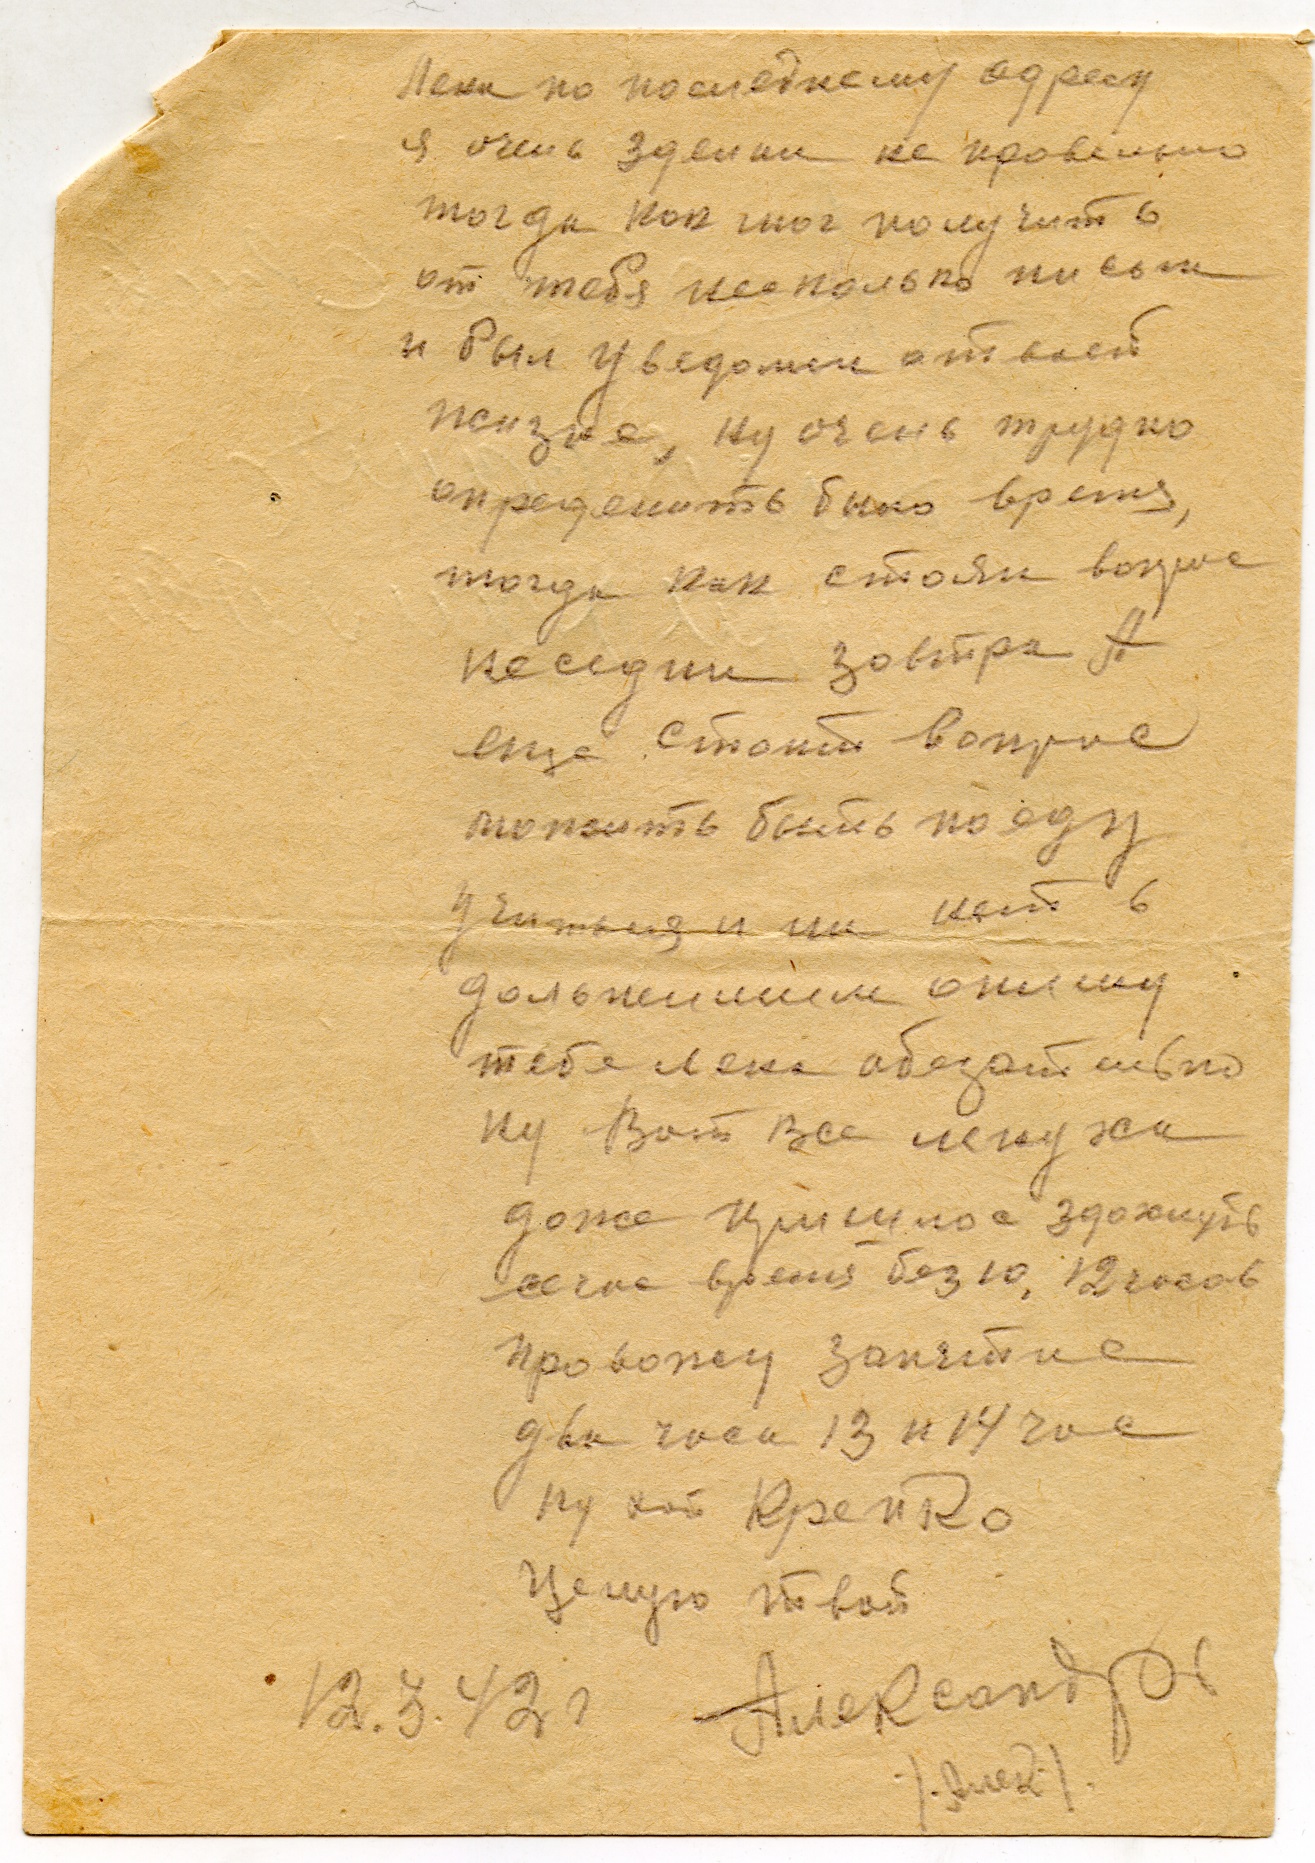 Лена по последнему адресу
я очень зделал не провельно
тогда как мог получить
от тебя несколько писем
и был уведомлен о твоей
жизне, ну очень трудно
определить было время,
тогда как стоял вопрос
не седни завтра А
еще стоит вопрос
можить быть поеду
учиться и на нет в
дольнешием опишу
тебе Лена обезательно
ну Вот все Лену жа
доже пришлос здохнуть
сечас время без 10, 12 часов
провожу занятие
два часа 13 и 14 час
ну пой Крепко
Целую твой
12.3.42 г Александров
/.Алек./.